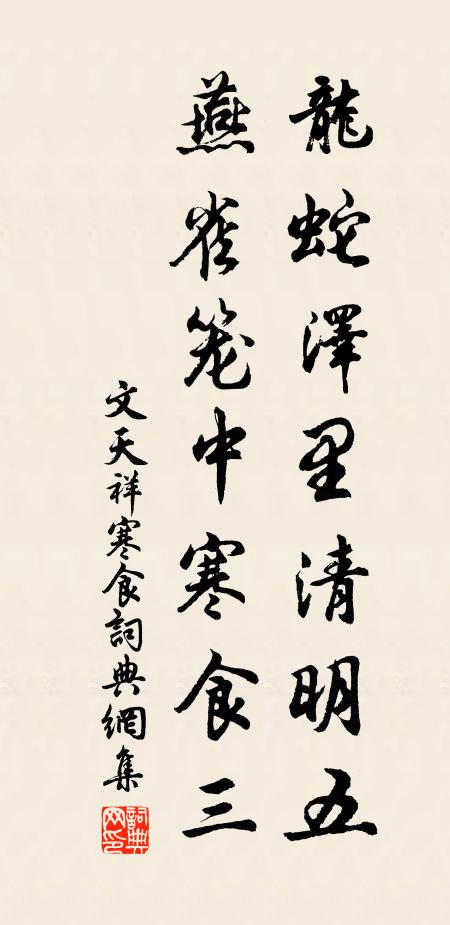 龍蛇澤里清明五
燕雀笼中寒食三
文天祥寒食詞典網集
詞典網印